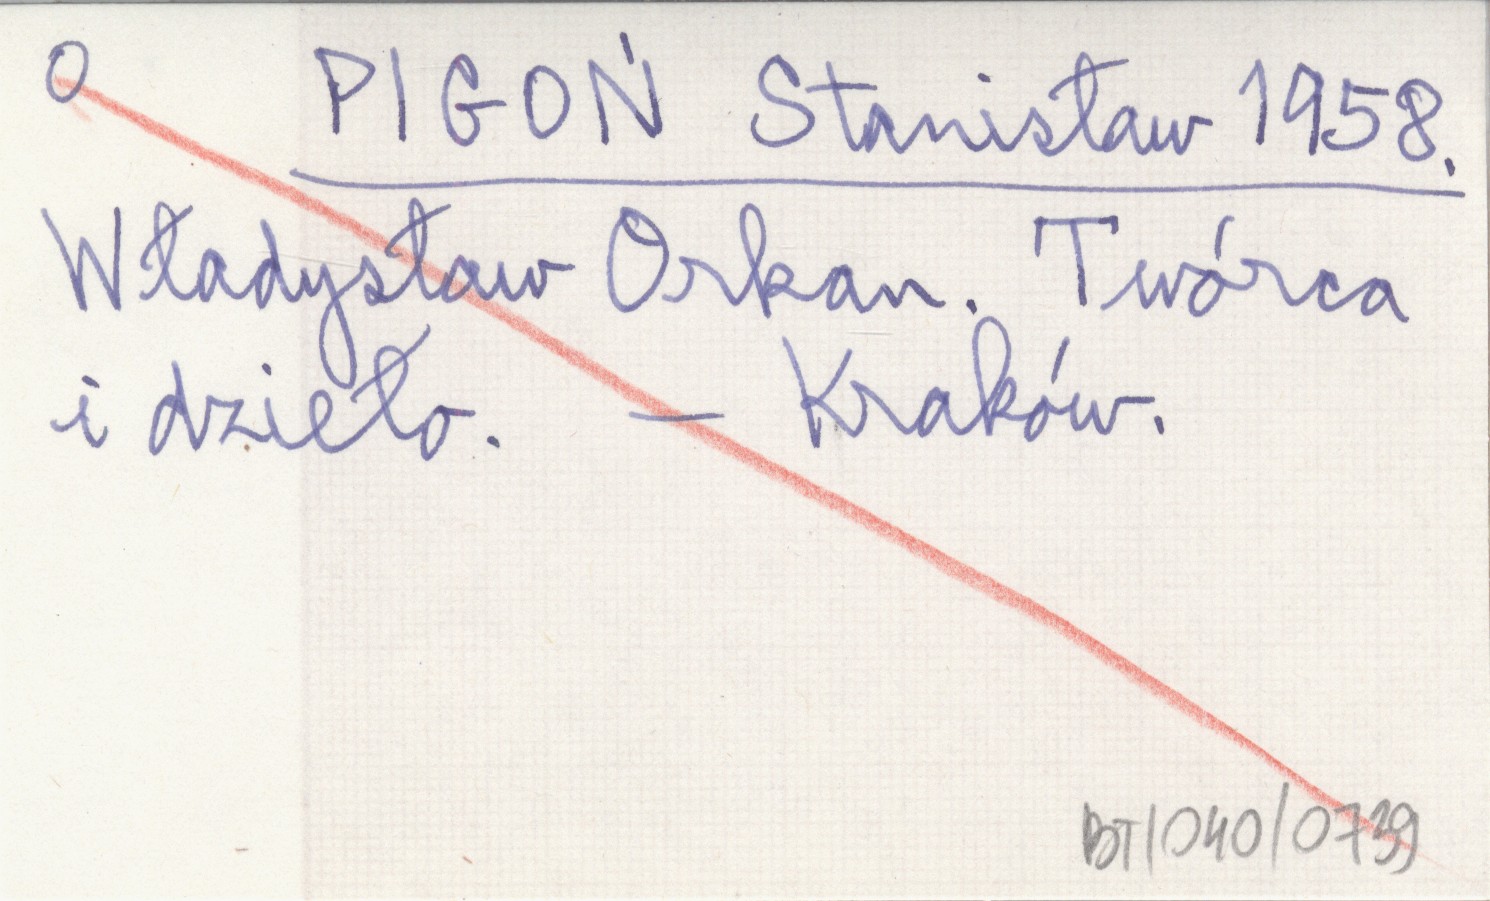 O PIGOŃ Stanisław 1958.
Władysław Orkan. Twórca
i dzieło. — Kraków.
BT/040/0739